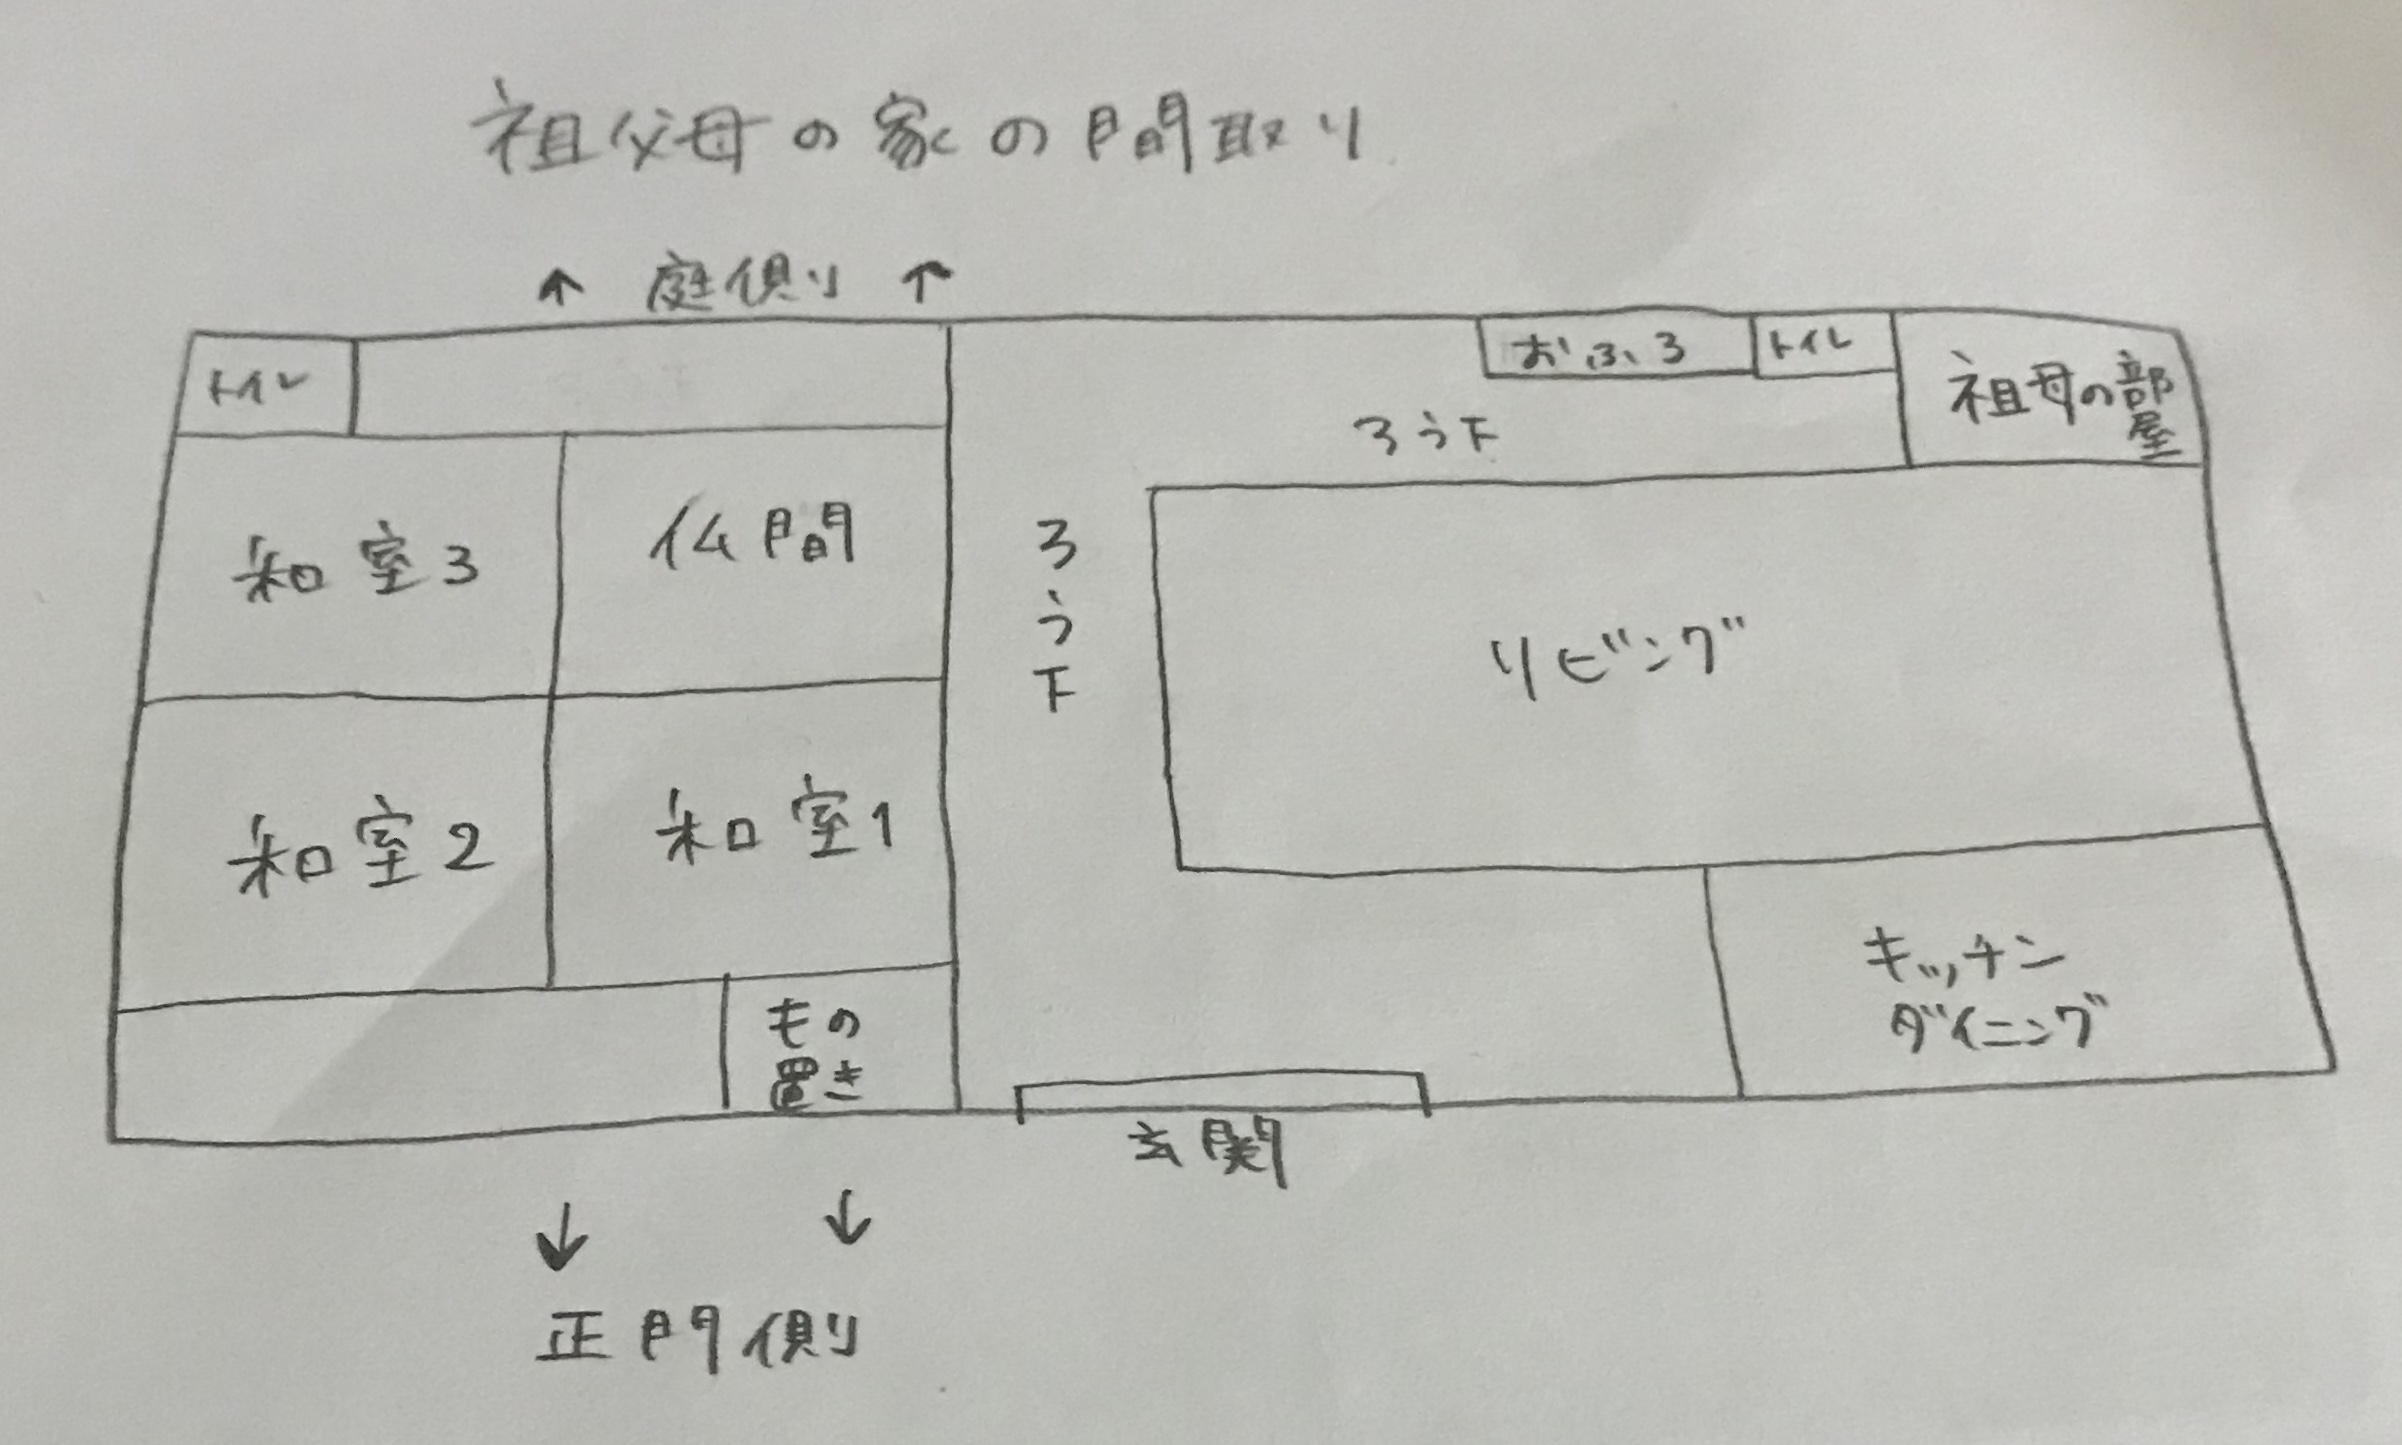 祖父母の家の間取り
↑ 庭側 ↑
トイレ
おふろ
トイレ
祖母の部
屋
ろう下
和室3
仏間
ろう下
リビング
和室2
和室1
キッチン
ダイニング
もの
置き
玄関
↓ ↓
正門側